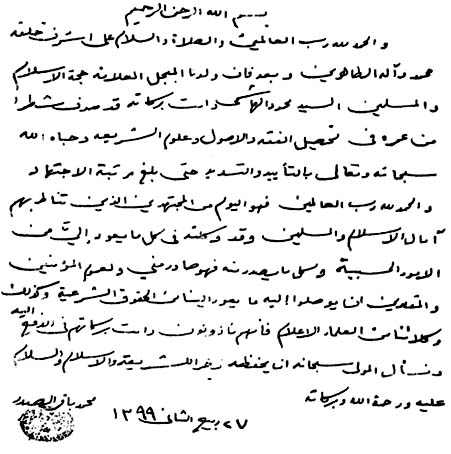 بسم الله الرحمن الرحيم
والحمد لله رب العالمين والصلاة والسلام على اشرف خلقه
محمد وآله الطاهرين وبعد فان ولدنا المبجل العلامة حجة الاسلام
والمسلمين السيد محمود الهاشمي دامت بركاته قد صرف شطرا
من عمره في تحصيل الفقه والاصول وعلوم الشريعه وحباه الله
سبحانه وتعالى بالتأييد والتسديد حتى بلغ مرتبة الاجتهاد
والحمد لله رب العالمين فهو اليوم من المجتهدين الذين تناط بهم
آمال الاسلام والمسلمين وقد وكلته في كل ما يعود إليّ من
الامور الحسبية وكل ما يصدر منه فهو صادر مني ولعموم المؤمنين
والمقلدين ان يوصلوا إليه ما يعود الينا من الحقوق الشرعية وكذلك
وكلائنا من العلماء الاعلام فانهم مأذونون دامت بركاتهم في الدفع اليه
ونسأل المولى سبحانه ان يحفظه ذخرا للشريعة والاسلام والسلام
عليه ورحمة الله وبركاته
محمد باقر الصدر
٢٧ ربيع الثاني ١٣٩٩